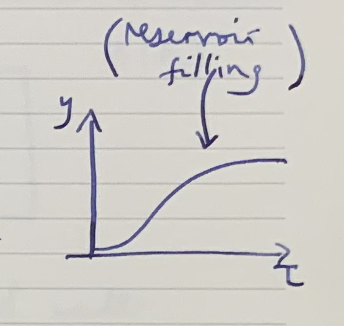 (reservoir
filling)
y
τ